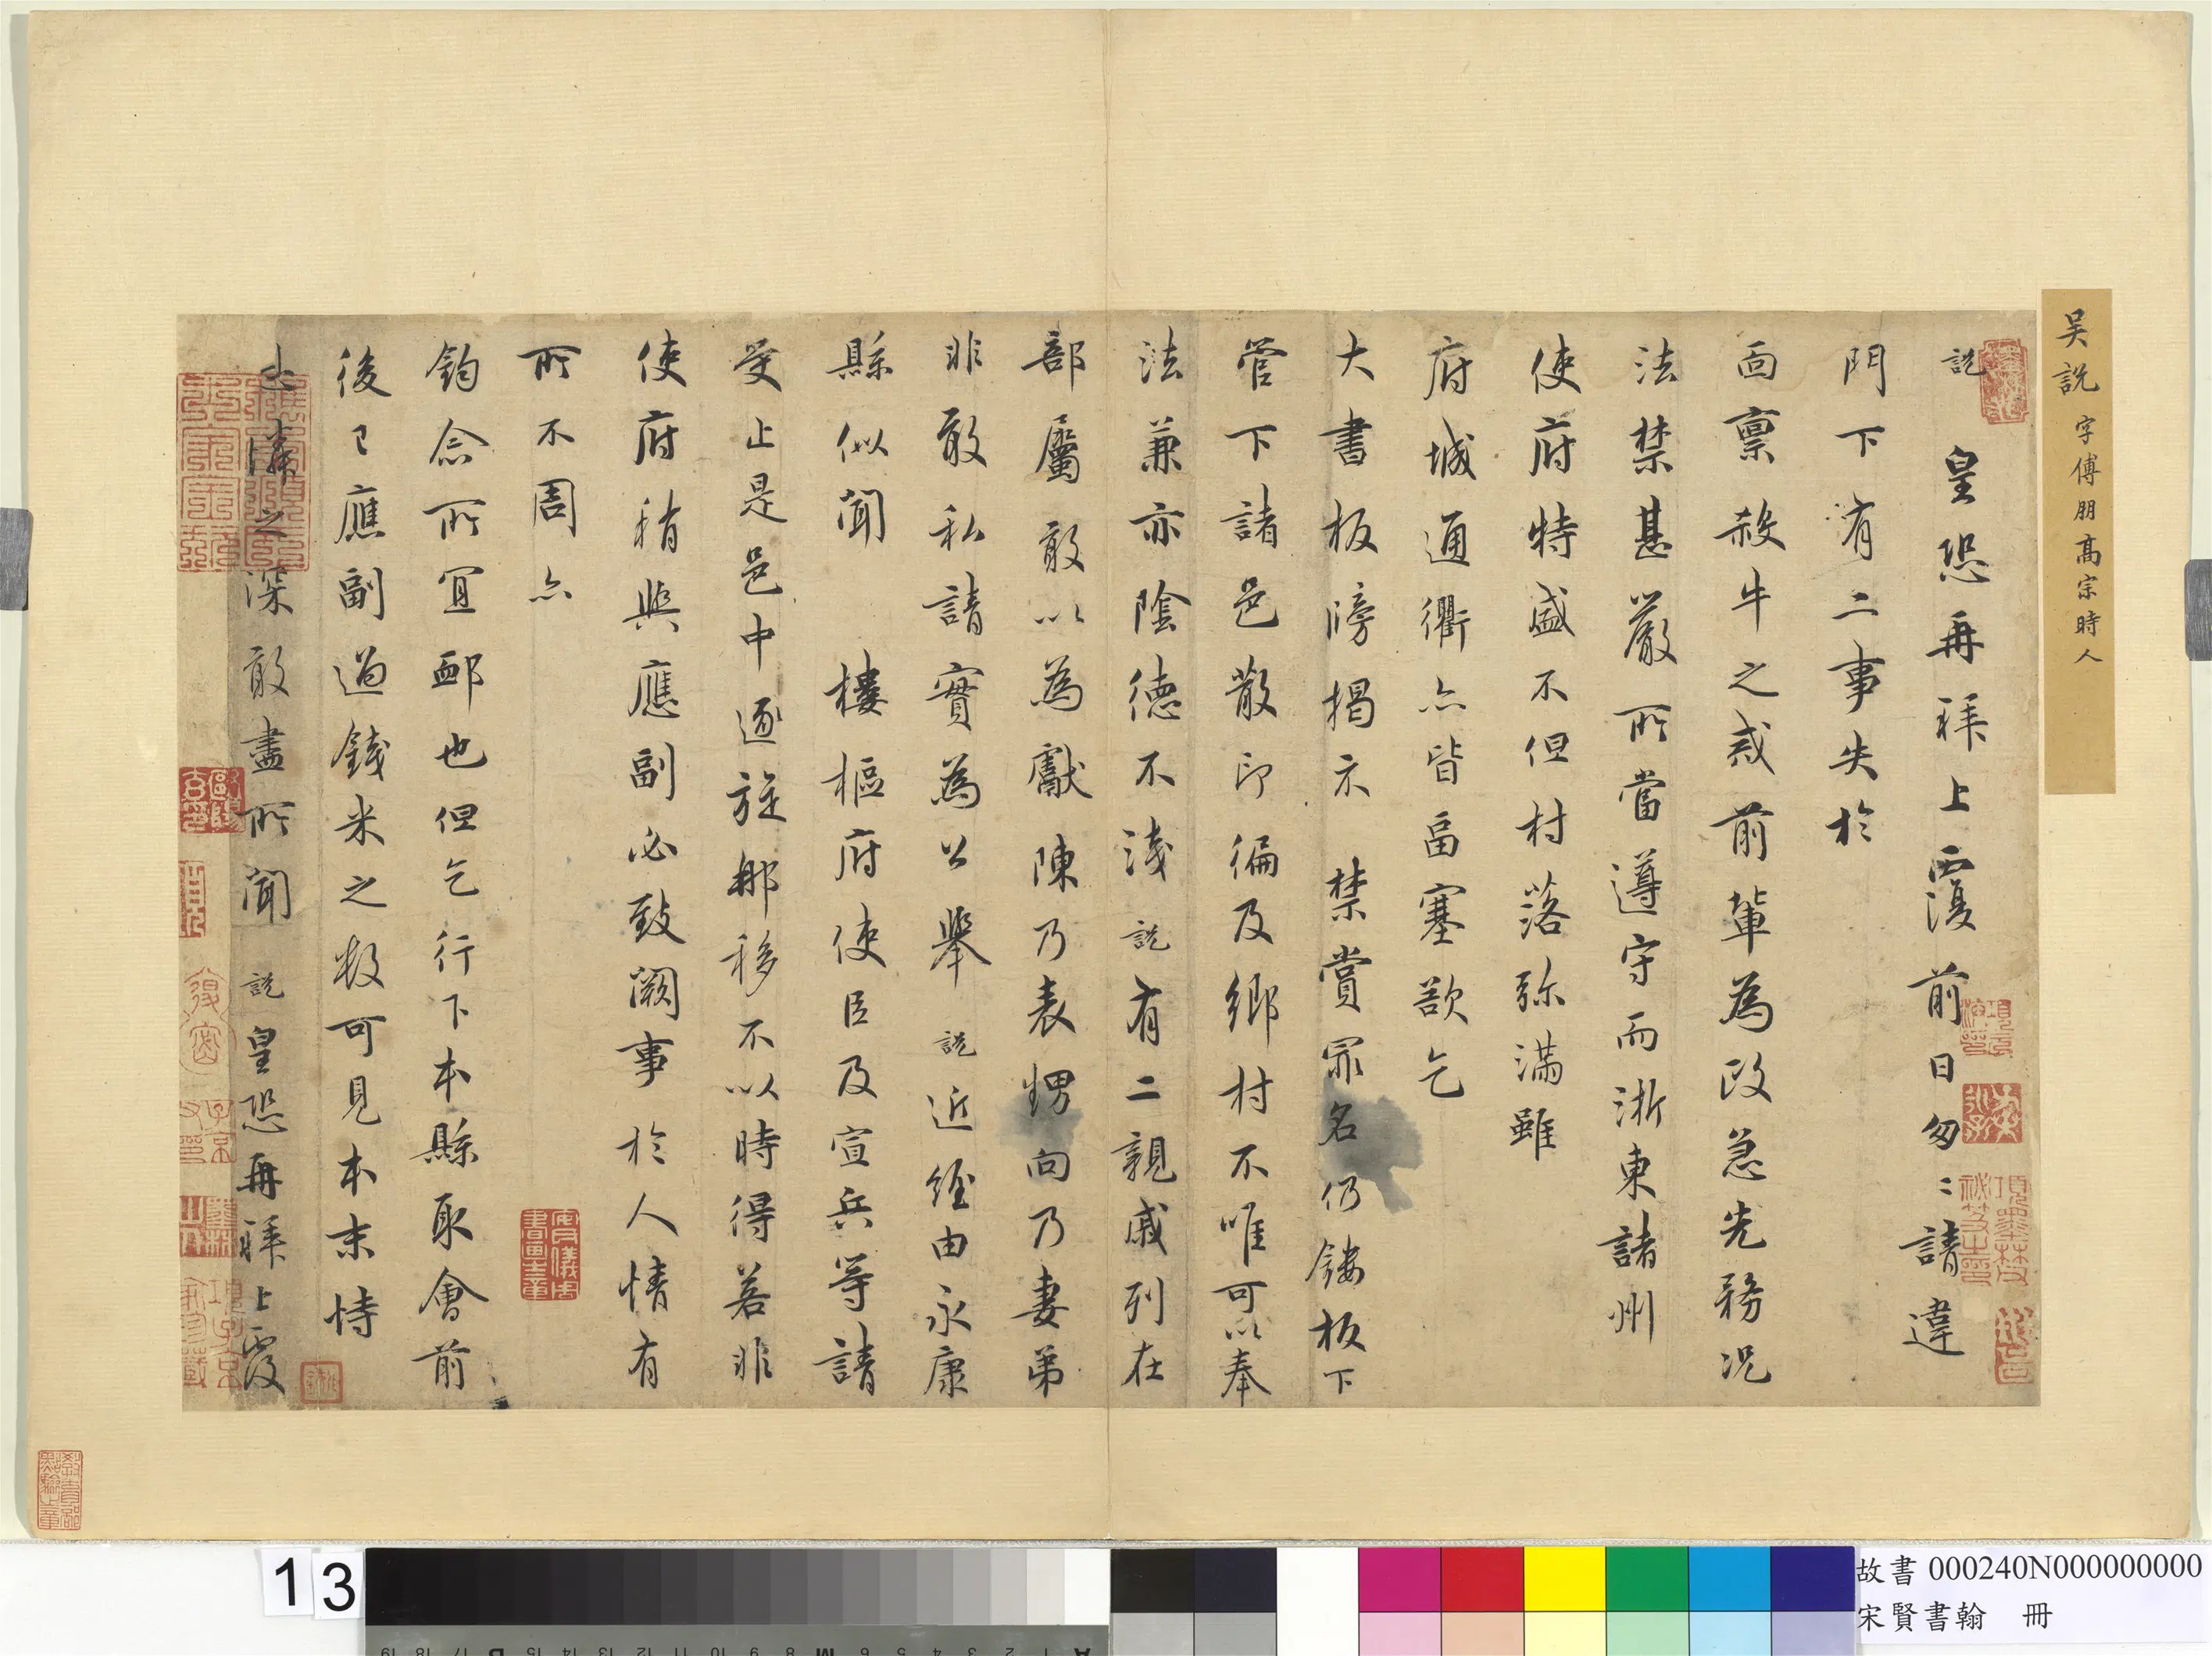 吳說 字傅朋高宗時人
說 皇恐再拜上覆前日匆〻請違
門下有二事失於
面稟殺牛之戒前輩為政急先務況
法禁甚嚴所當遵守而浙東諸州
使府特盛不但村落弥滿雖
府城通衢亦皆畐塞欲乞
大書板牓揭示禁賞罪名仍鏤板下
管下諸邑散印徧及鄉村不唯可以奉
法兼亦陰德不淺說有二親戚列在
部屬敢以為獻陳乃表甥向乃妻弟
非敢私請實為公舉說近經由永康
縣似聞 樓樞府使臣及宣兵等請
受止是邑中逐旋那移不以時得若非
使府稍與應副必致闕事於人情有
所不周亦
鈞念所宜卹也但乞行下本縣取會前
後已應副過錢米之數可見本末恃
憐之深敢盡所聞 說皇恐再拜上覆
13
故書 000240N000000000
宋賢書翰 冊